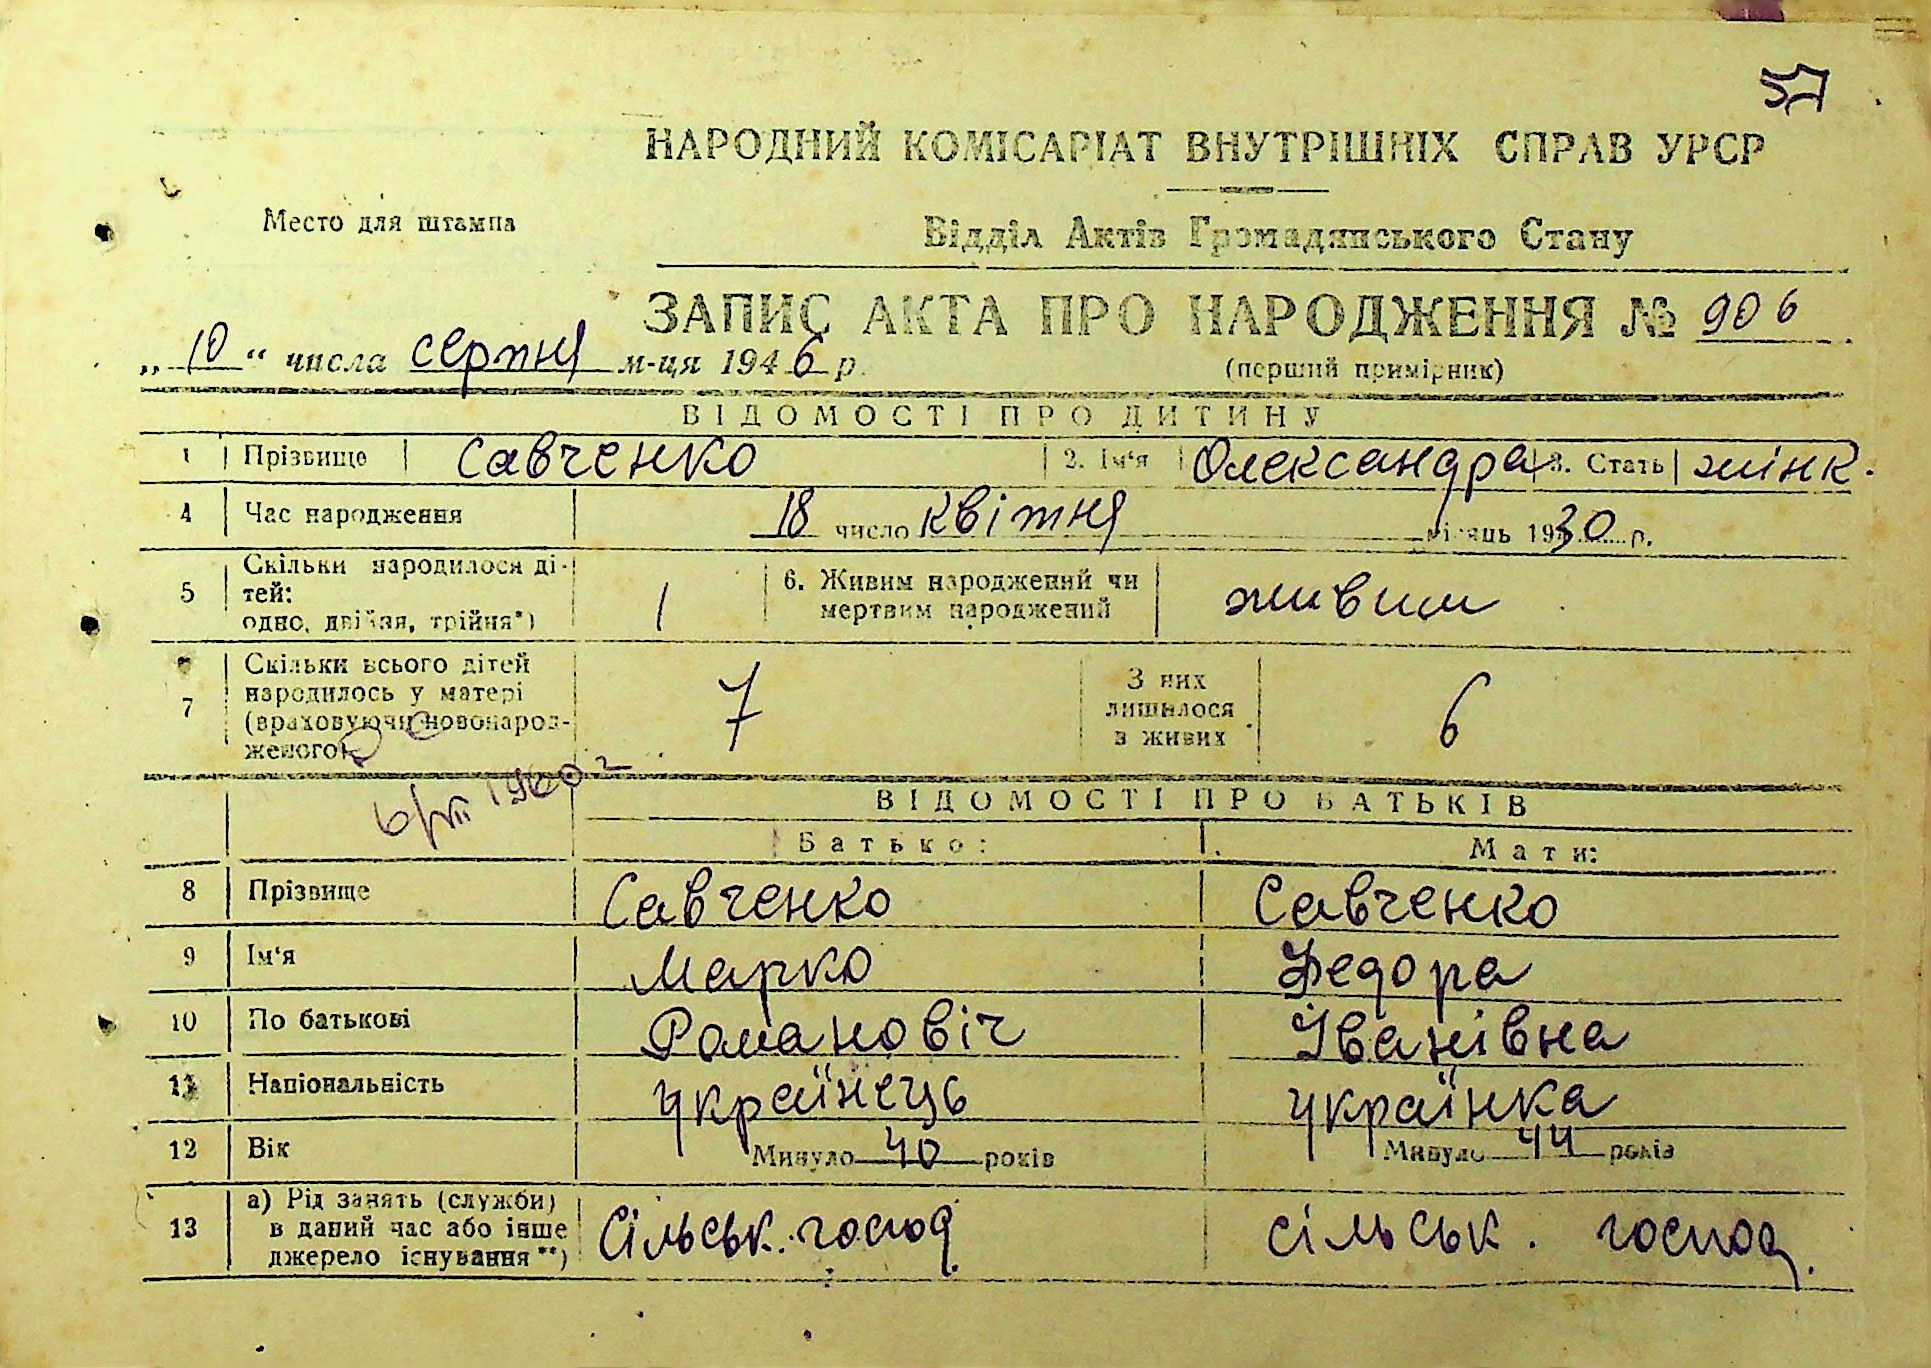 57
НАРОДНИЙ КОМІСАРІАТ ВНУТРІШНІХ СПРАВ УРСР
Место для штампа
Відділ Актів Громадянського Стану
ЗАПИС АКТА ПРО НАРОДЖЕННЯ № 906
„10“ числа серпня м-ця 1946 р.
(перший примірник)
ВІДОМОСТІ ПРО ДИТИНУ
1 Прізвище Савченко 2. Ім‘я Олександра 3. Стать жінк.
4 Час народження 18 число квітня місяць 1930 р.
5 Скільки народилося дітей: одно, двійня, трійня*) 1 6. Живим народжений чи мертвим народжений живим
7 Скільки всього дітей народилось у матері (враховуючи новонародженого) 7 З них лишилося в живих 6
6/VII 1960 г
ВІДОМОСТІ ПРО БАТЬКІВ
Батько: Мати:
8 Прізвище Савченко Савченко
9 Ім‘я Марко Федора
10 По батькові Романовіч Іванівна
11 Національність українець українка
12 Вік Минуло 40 років Минуло 44 років
13 а) Рід занять (служби) в даний час або інше джерело існування**) сільськ. господ. сільськ. господ.